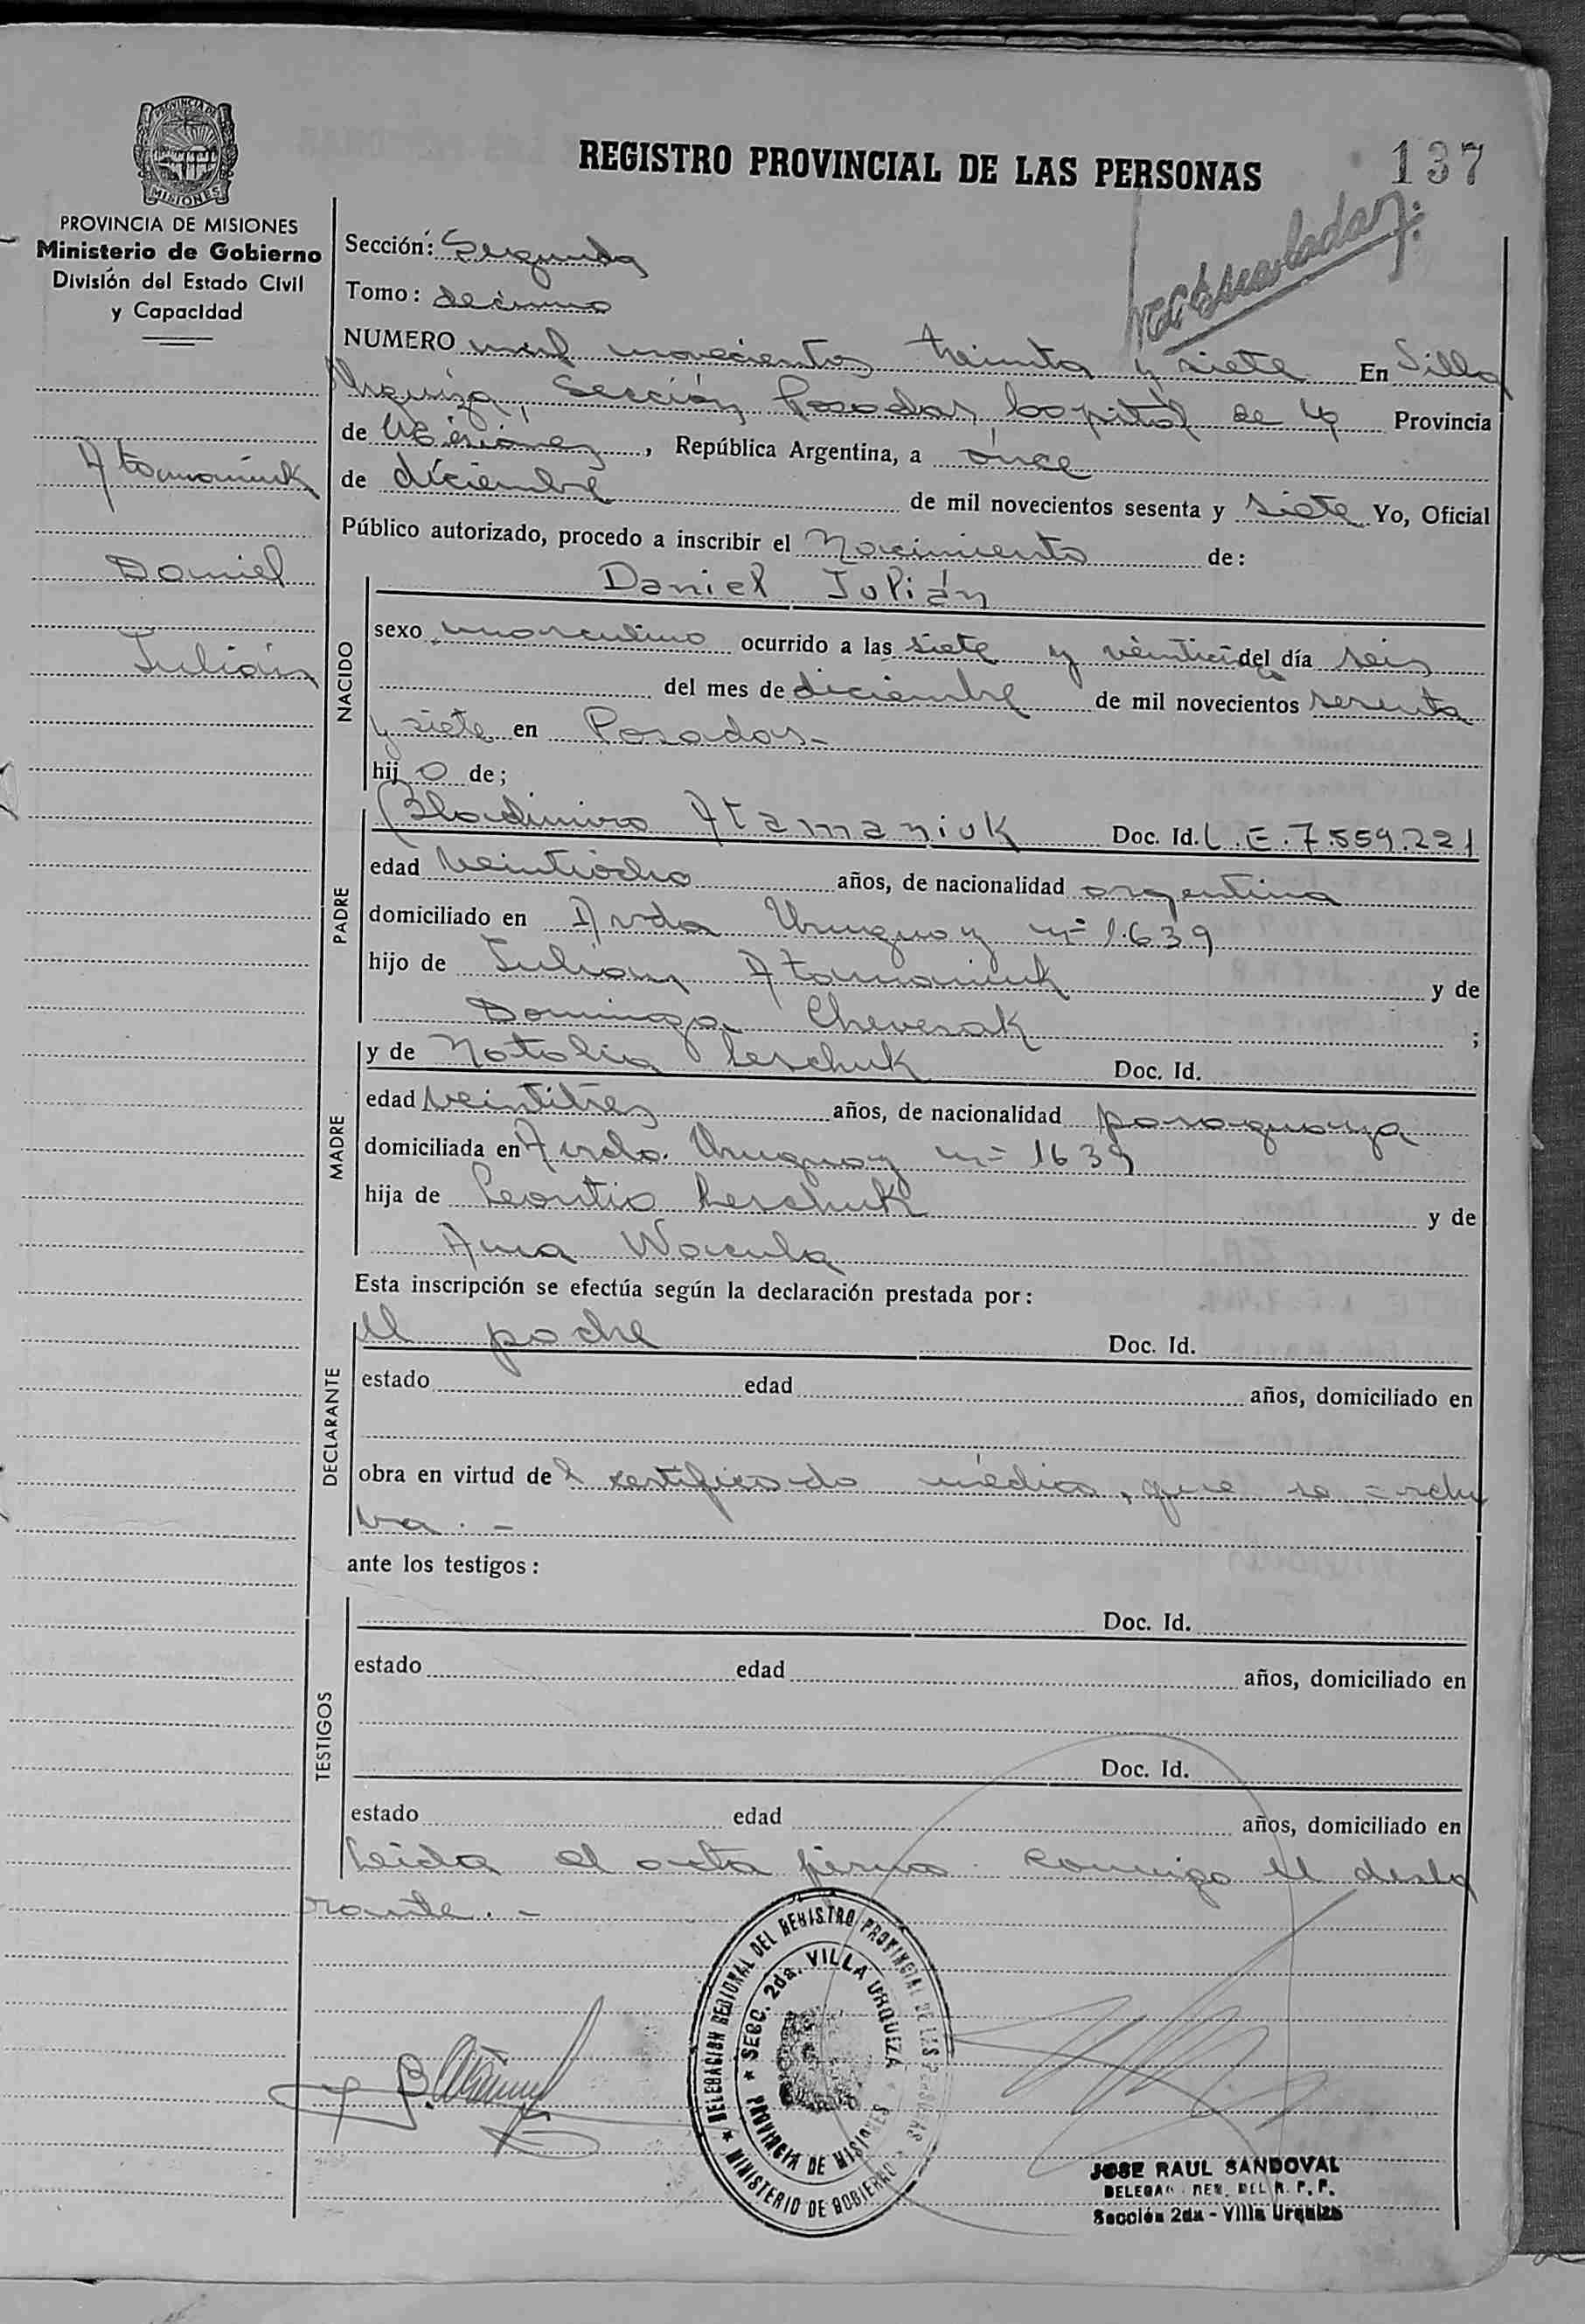 PROVINCIA DE MISIONES
Ministerio de Gobierno
División del Estado Civil
y Capacidad
Atamaniuk
Daniel
Julián
REGISTRO PROVINCIAL DE LAS PERSONAS
137
Sección: Segunda
Tomo: décimo
NUMERO mil novecientos treinta y siete En Villa
Urquiza, Sección Posadas, Capital de la Provincia
de Misiones, República Argentina, a once
de diciembre de mil novecientos sesenta y siete Yo, Oficial
Público autorizado, procedo a inscribir el Nacimiento de:
NACIDO
Daniel Julián
sexo masculino ocurrido a las siete y del día seis
del mes de diciembre de mil novecientos sesenta
y siete en Posadas.-
hijo de;
PADRE
Bladimiro Atamaniuk Doc. Id. L.E. 7.559.221
edad veintiocho años, de nacionalidad argentina
domiciliado en Avda Uruguay nº 1.639
hijo de Julian Atamaniuk y de
Dominga Cheverak ;
MADRE
y de Natalia Leschuk Doc. Id.
edad veintitres años, de nacionalidad paraguaya
domiciliada en Avda. Uruguay nº 1639
hija de Leontio Leschuk y de
Ana Wacula
Esta inscripción se efectúa según la declaración prestada por:
DECLARANTE
El padre Doc. Id.
estado edad años, domiciliado en
obra en virtud del certificado médico, que se archi
va.-
ante los testigos:
TESTIGOS
Doc. Id.
estado edad años, domiciliado en
Doc. Id.
estado edad años, domiciliado en
Leida el acta firma conmigo el decla
rante.-
DELEGACION REGIONAL DEL REGISTRO PROVINCIAL DE LAS PERSONAS
SECC. 2da. VILLA URQUIZA
PROVINCIA DE MISIONES
MINISTERIO DE GOBIERNO
JOSE RAUL SANDOVAL
DELEGAD. REG. DEL R. P. P.
Sección 2da - Villa Urquiza